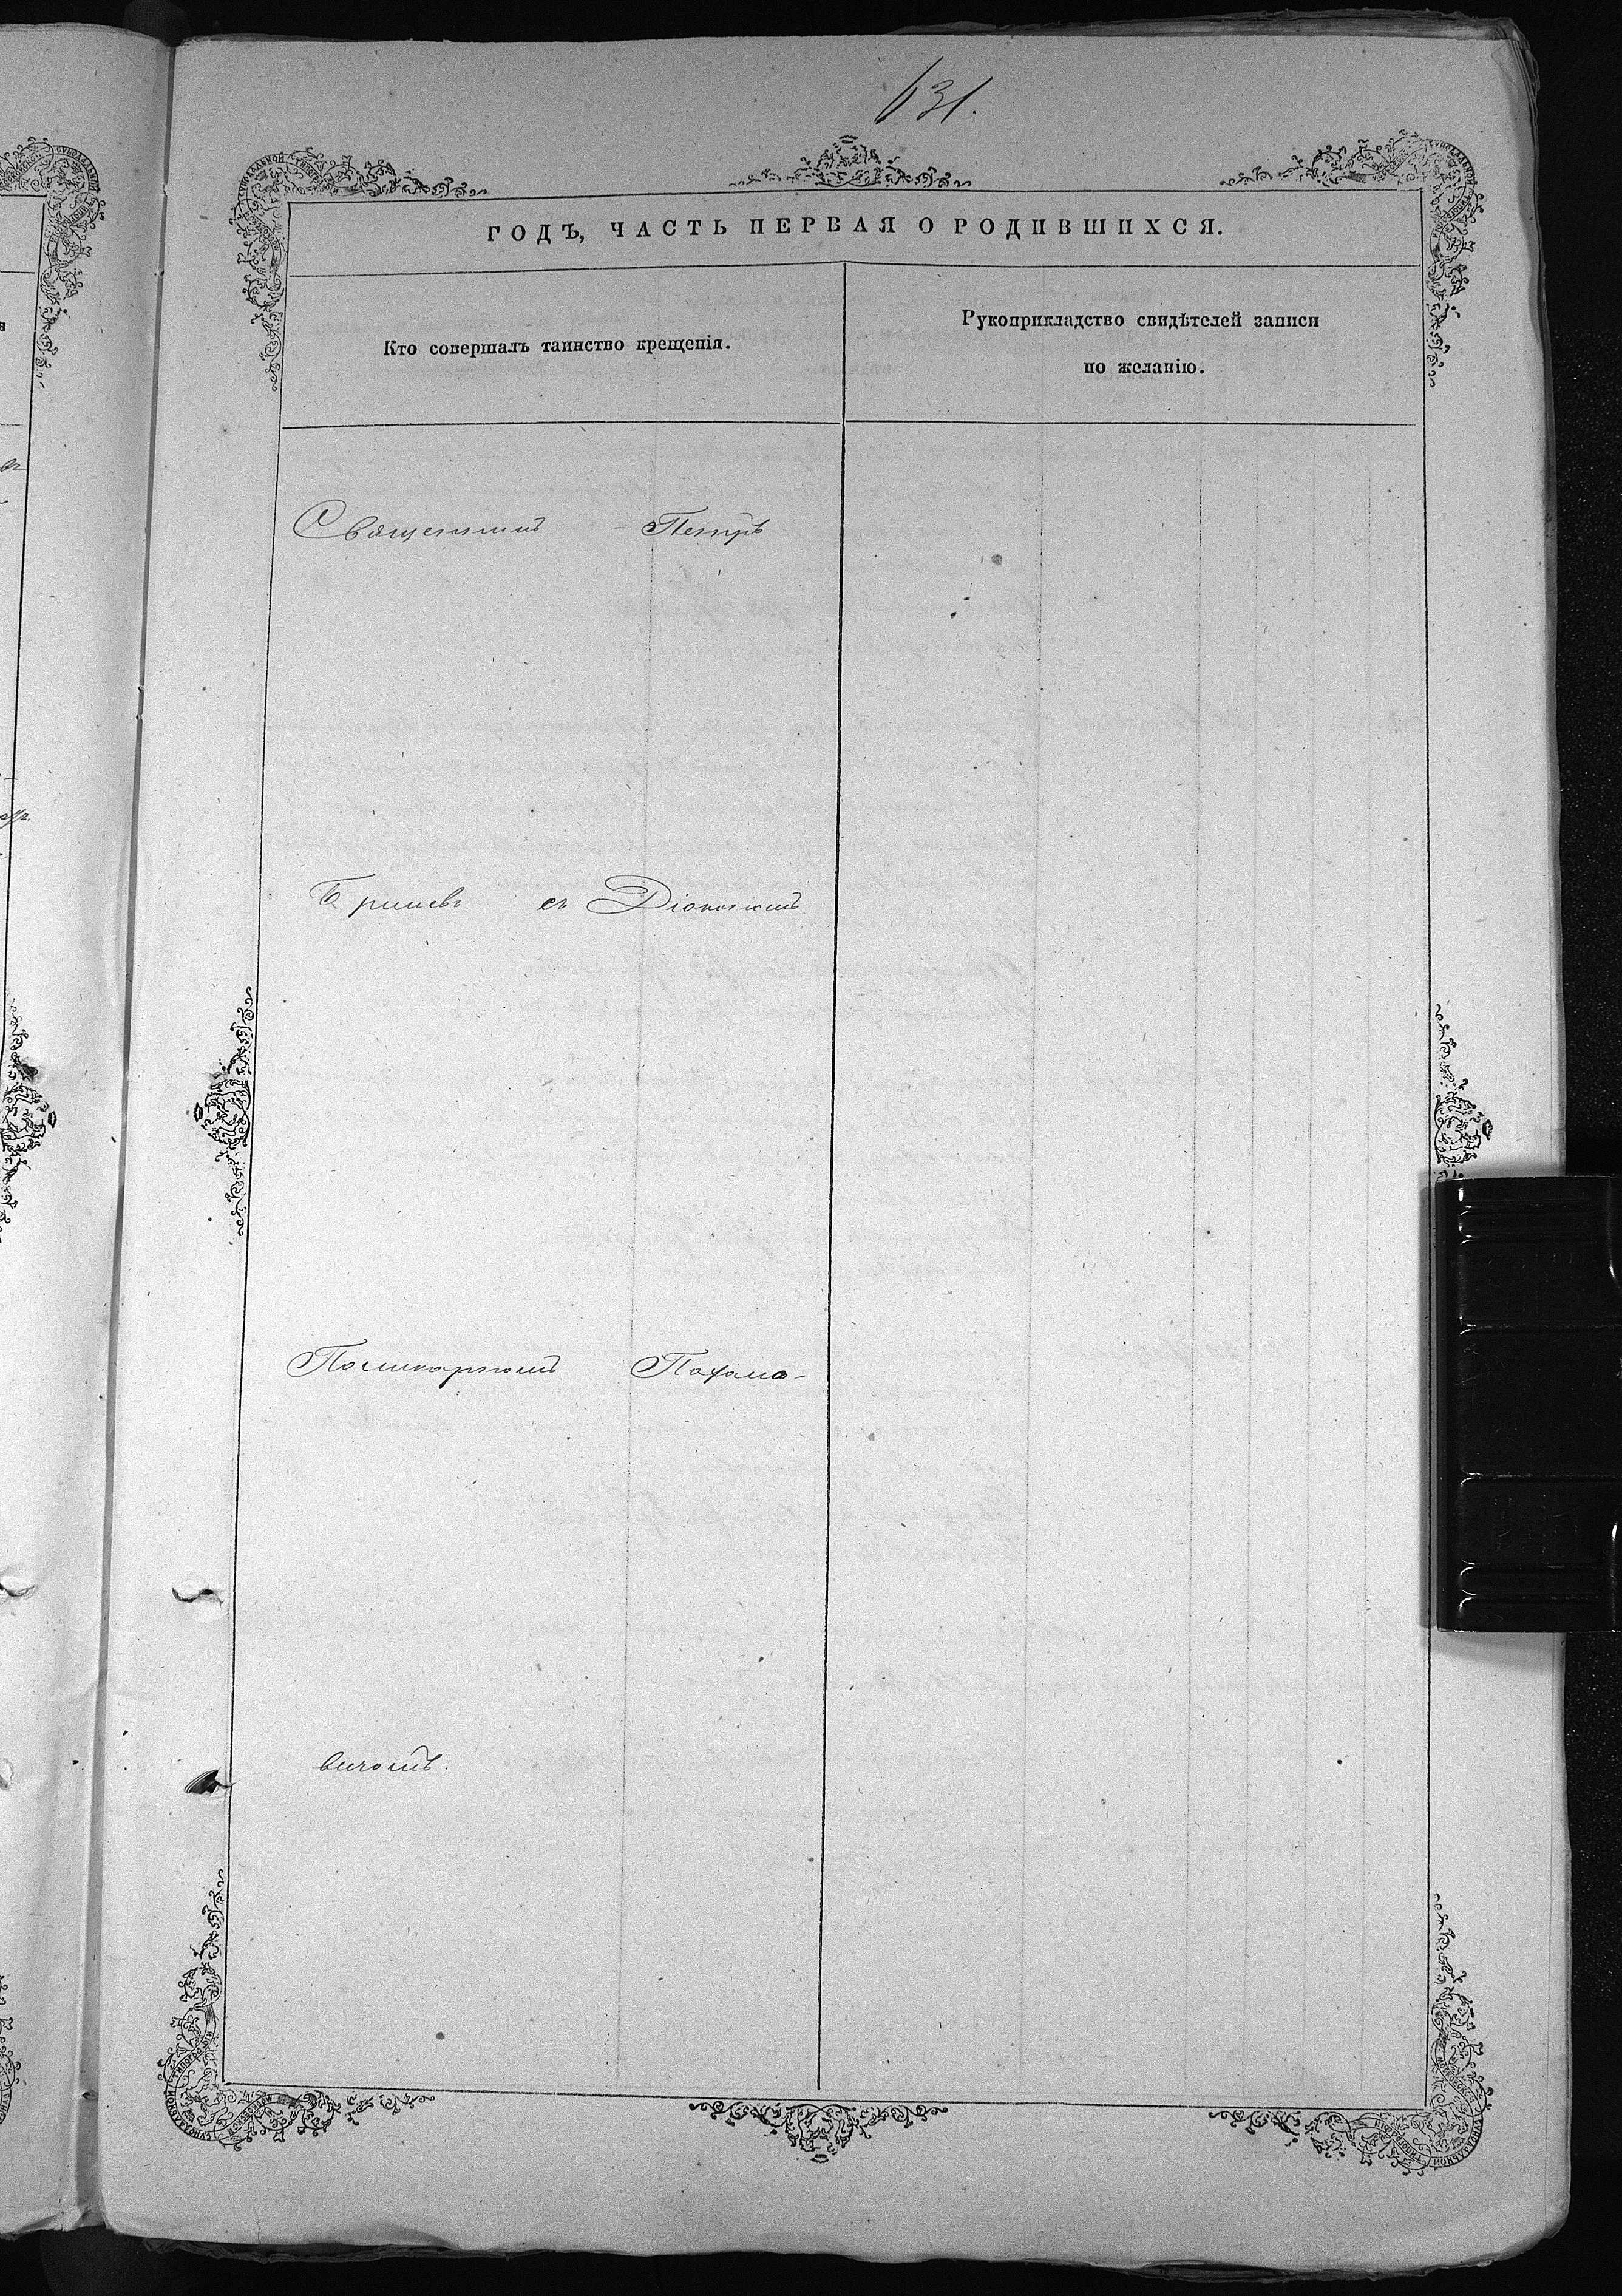 631.
ГОДЪ, ЧАСТЬ ПЕРВАЯ О РОДИВШИХСЯ.
Кто совершалъ таинство крещенія.
Рукоприкладство свидѣтелей записи
по желанію.
Священникъ Петръ
съ Діакономъ
Поликарпомъ Пахомо-
вичомъ.